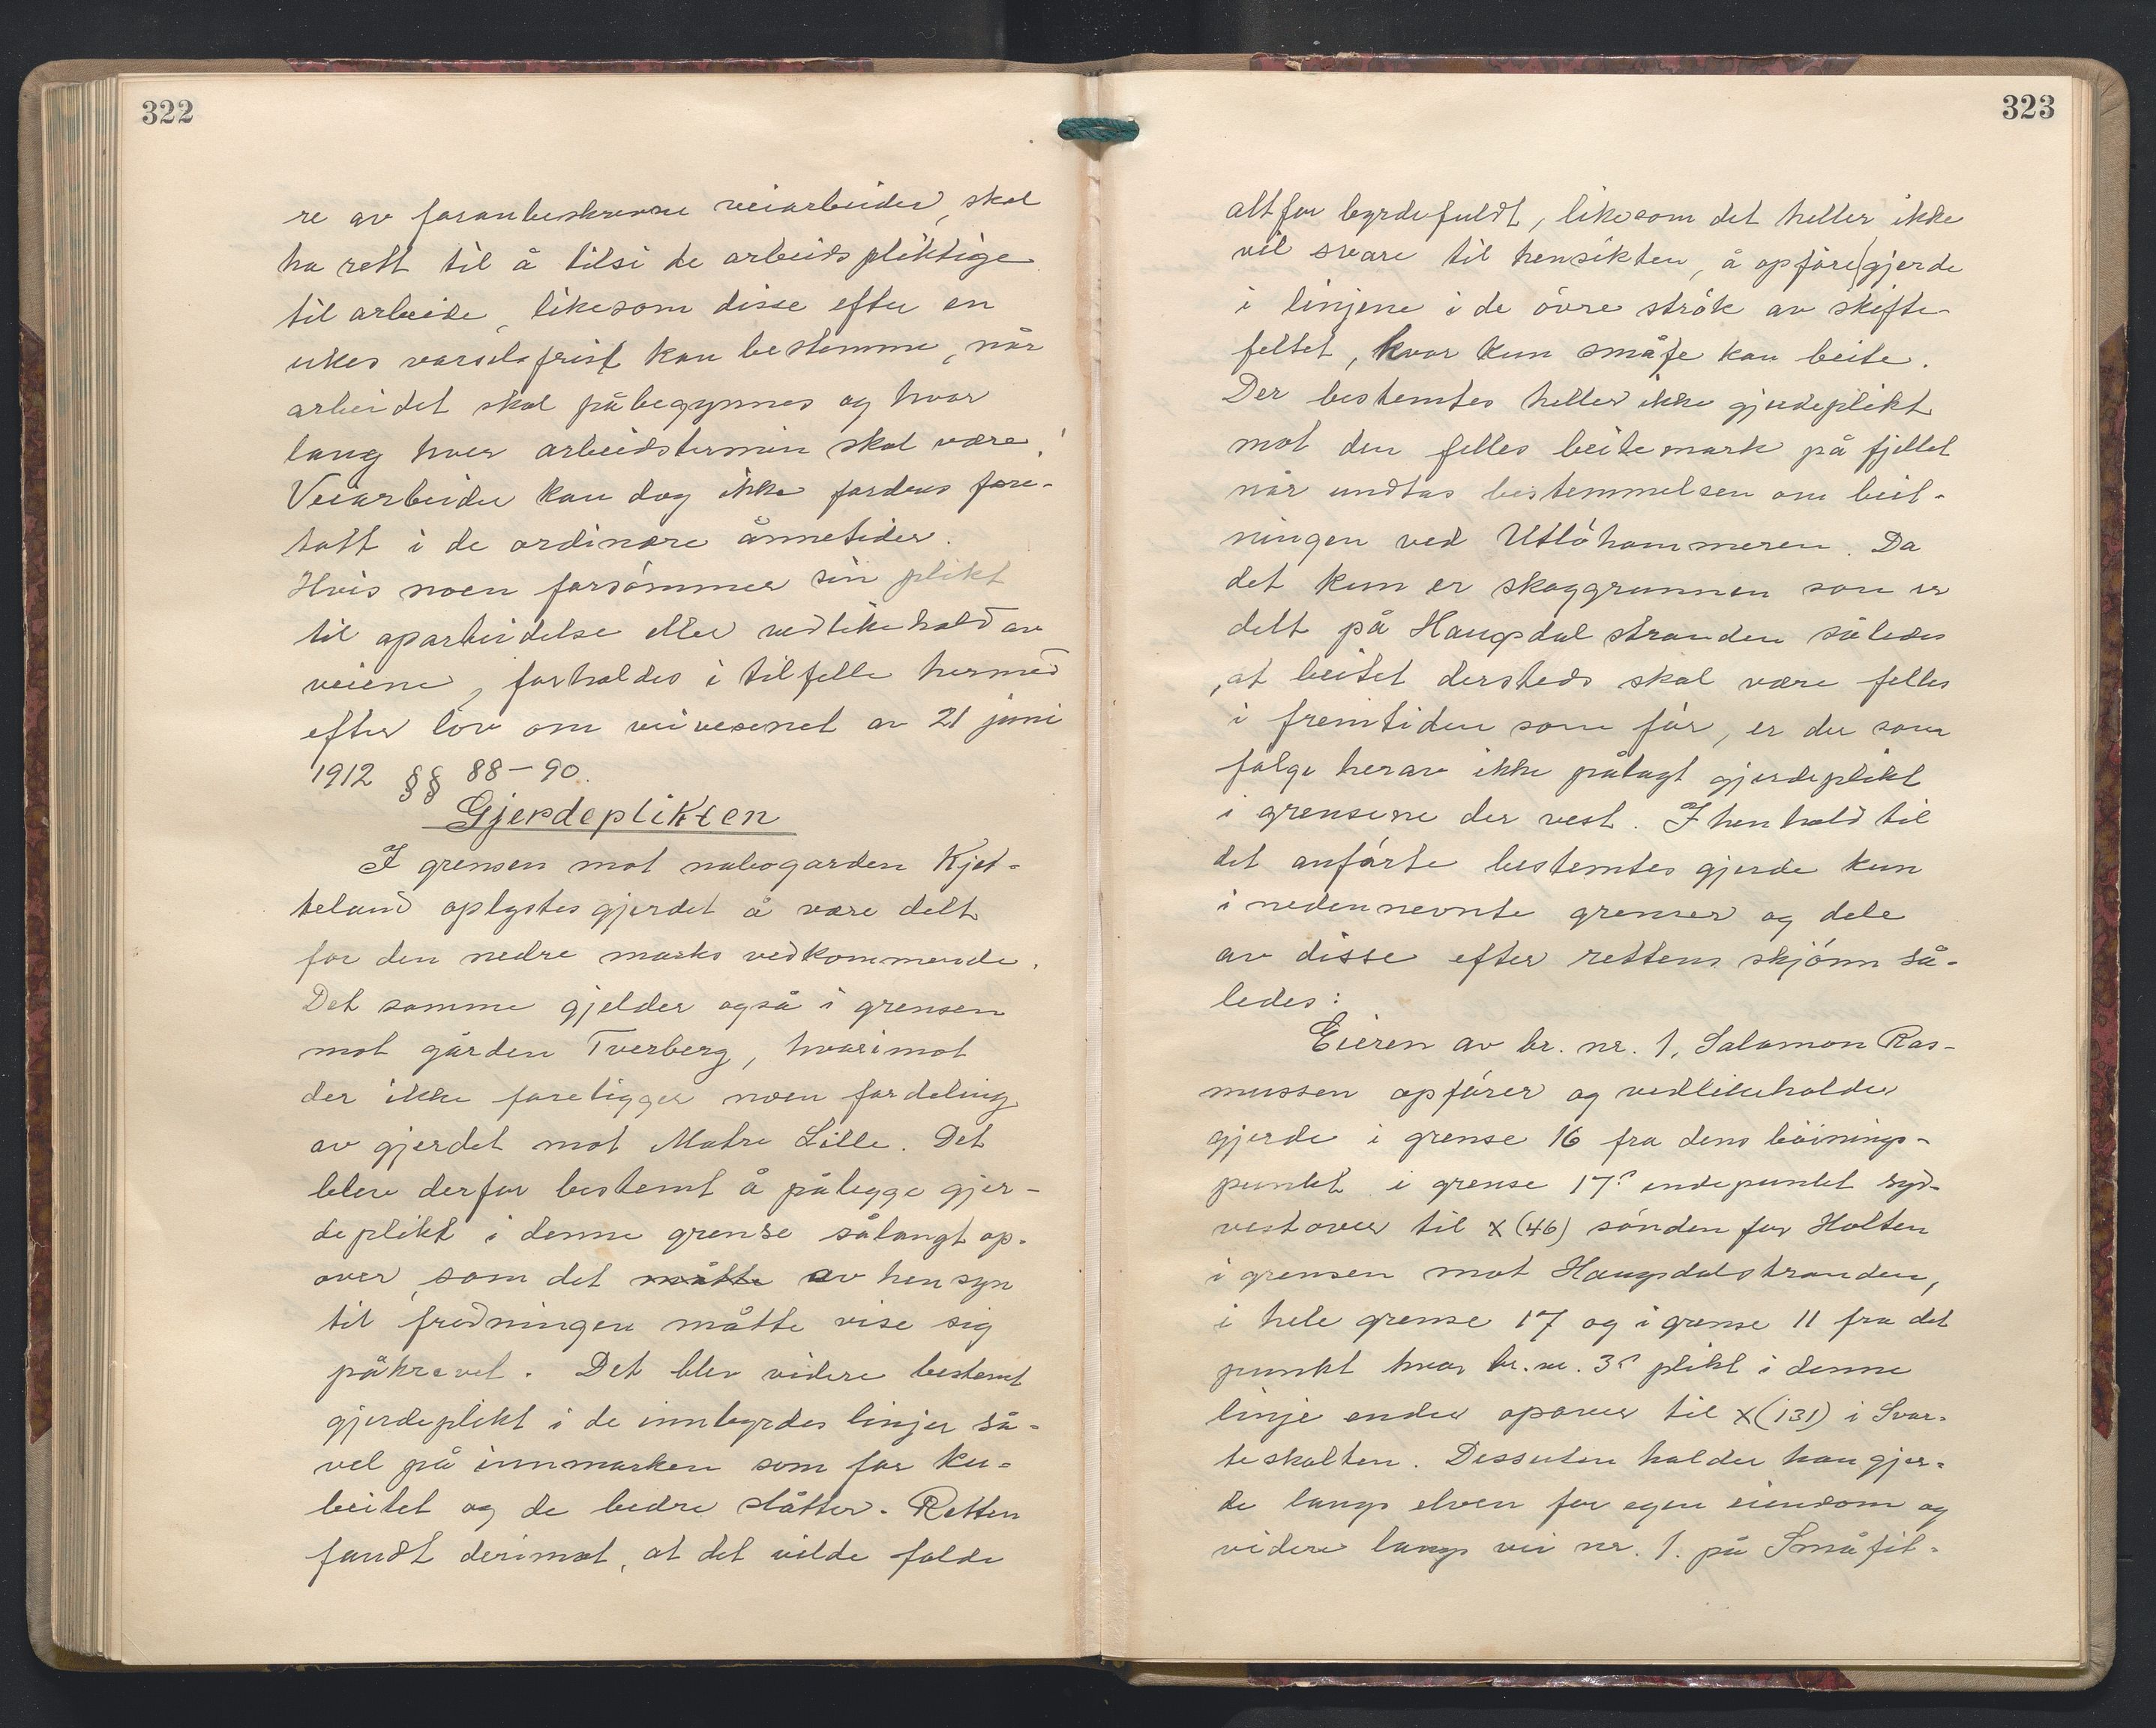 322
re av foranbeskrevne veiarbeider, skal
ha rett til å tilsi de arbeidspliktige
til arbeide, likesom disse efter en
ukes varselsfrist kan bestemme, når
arbeidet skal påbegynnes og hvor
lang hver arbeidstermin skal være.
Veiarbeider kan dog ikke fordres fore-
tatt i de ordinære ånnetider.
Hvis noen forsömmer sin plikt
til oparbeidelse eller vedlikehold av
veiene, forholdes i tilfelle hermed
efter lov om veivesenet av 21 juni
1912 §§ 88-90.
Gjerdeplikten
I grensen mot nabogarden Kjet-
teland oplystes gjerdet å være delt
for den nedre marks vedkommende.
Det samme gjelder også i grensen
mot gården Tverberg, hvorimot
der ikke foreligger noen fordeling
av gjerdet mot Matre Lille. Det
blev derfor bestemt å pålegge gjer-
deplikt i denne grense sålangt op-
over, som det måtte av hensyn
til fredningen måtte vise sig
påkrevet. Det blev videre bestemt
gjerdeplikt i de innbyrdes linjer så-
vel på innmarken som for ku-
beitet og de bedre slåtter. Retten
fandt derimot, at det vilde falde
323
altfor byrdefuldt, likesom det heller ikke
vil svare til hensikten, å opföre gjerde
i linjene i de övre strök av skifte-
feltet, hvor kun småfe kan beite.
Der bestemtes heller ikke gjerdeplikt
mot den felles beitemark på fjellet
når undtas bestemmelsen om beit-
ningen ved Utlöhammeren. Da
det kun er skoggrunnen som er
delt på Haugsdalstranden således
, at beitet dersteds skal være felles
i fremtiden som för, er der som
følge herav ikke pålagt gjerdeplikt
i grensene der vest. I henhold til
det anförte bestemtes gjerde kun
i nedennevnte grenser og dele
av disse efter rettens skjönn så-
ledes:
Eieren av br. nr. 1, Salamon Ras-
mussen opförer og vedlikeholder
gjerde i grense 16 fra dens böinings-
punkt i grense 17s endepunkt syd-
vestover til x (46) sönden for Holten
i grensen mot Haugsdalstranden,
i hele grense 17 og i grense 11 fra det
punkt hvor br. nr. 3s plikt i denne
linje ender opover til x (131) i Svar-
teskolten. Dessuten holder han gjer-
de langs elven for egen eiendom og
videre langs vei nr. 1. på Småfit-